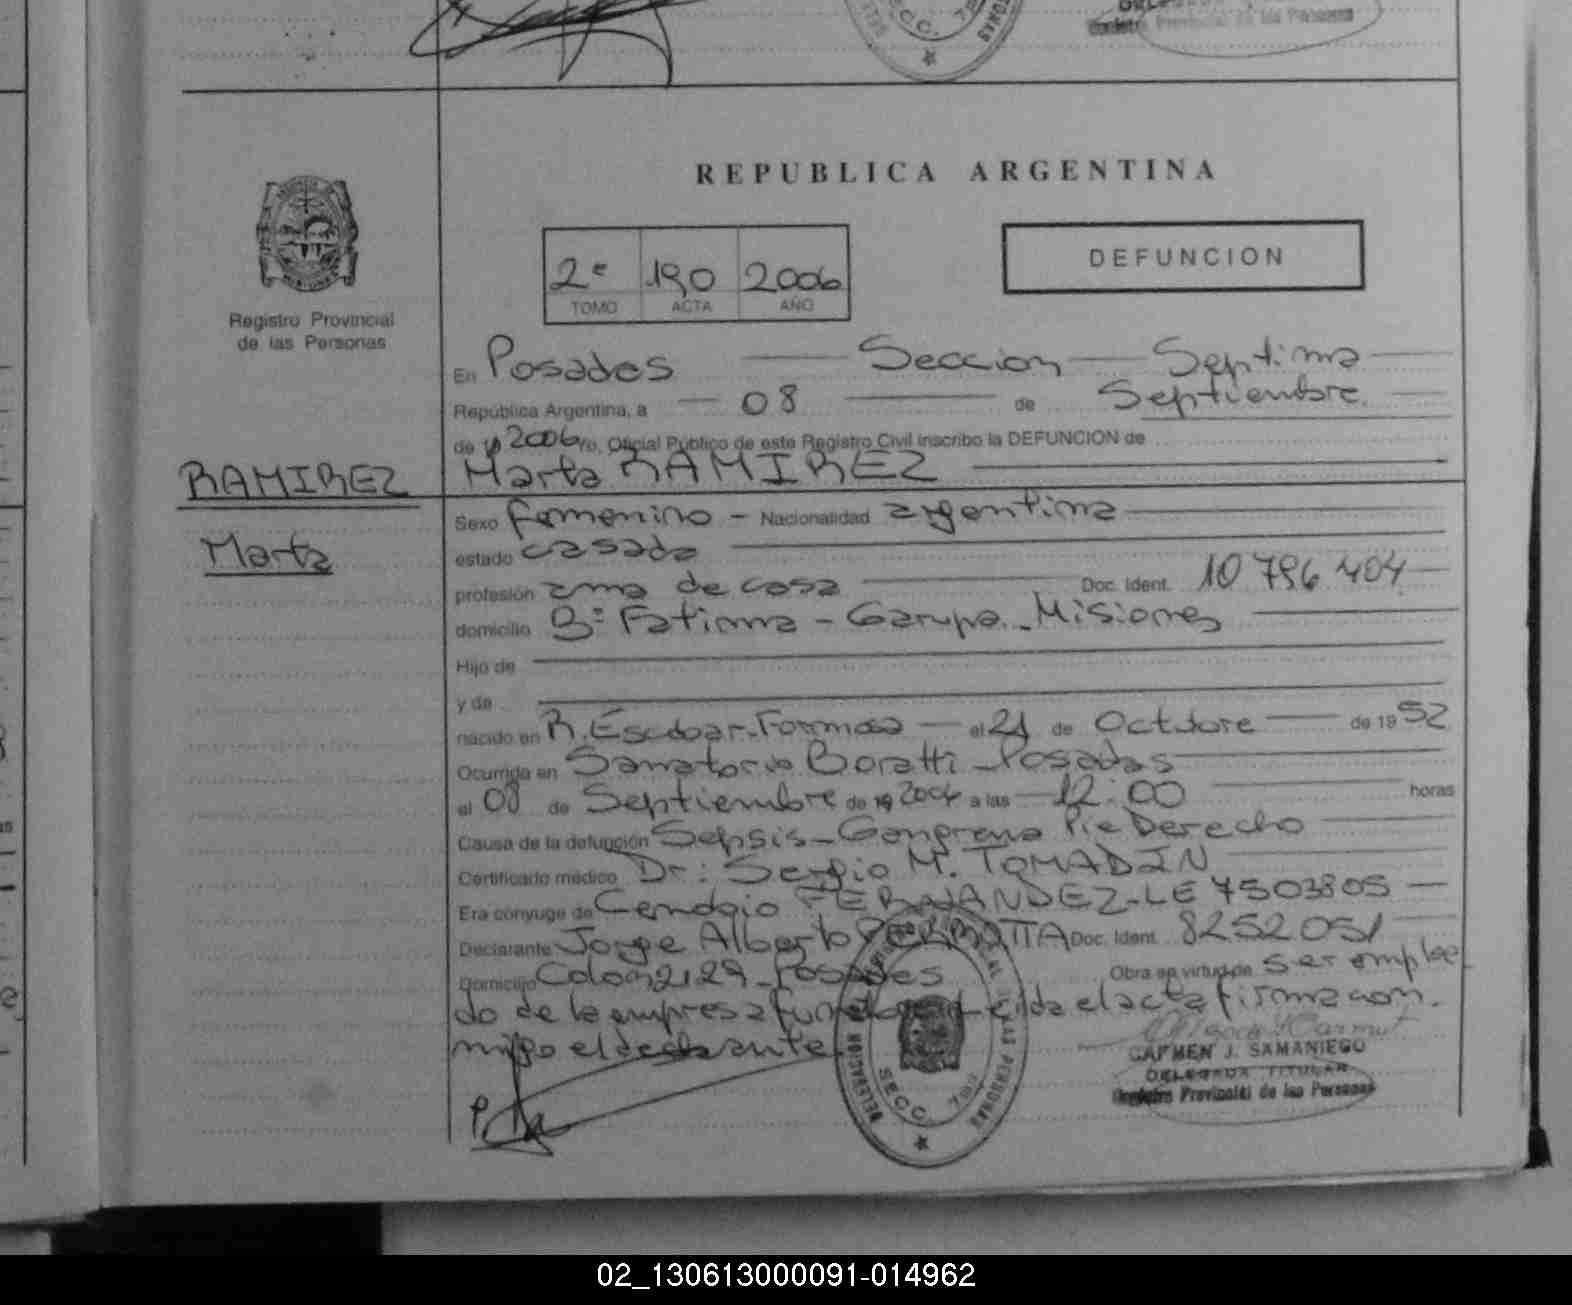 Registro Provincial de las Personas
REPUBLICA ARGENTINA
2º 190 2006
TOMO ACTA AÑO
DEFUNCION
Registro Provincial
de las Personas
En Posadas Seccion Septima
República Argentina, a 08 de Septiembre
de 2006 yo, Oficial Público de este Registro Civil inscribo la DEFUNCION de
Marta RAMIREZ
RAMIREZ
Marta
Sexo femenino - Nacionalidad argentina
estado casada
profesión ama de casa Doc. Ident. 10 796 404
domicilio Bº Fatima - Garupa - Misiones
Hijo de
y de
nacido en Escobar - Formosa el 21 de Octubre de 1952
Ocurrida en Sanatorio Boratti - Posadas
el 08 de Septiembre de 19 2006 a las 12:00 horas
Causa de la defunción Sepsis - Gangrena Pie Derecho
Certificado médico Dr: Sergio M. TOMADIN
Era cónyuge de FERNANDEZ - LE 7503805
Declarante Jorge Alberto Doc. Ident. 8252051
Domicilio Colon 2129 - Posadas Obra en virtud de ser emplea
do de la empresa el acta firma con
migo el declarante
CARMEN J. SAMANIEGO
DELEGADA TITULAR
Registro Provincial de las Personas
SECC. 7
02_130613000091-014962